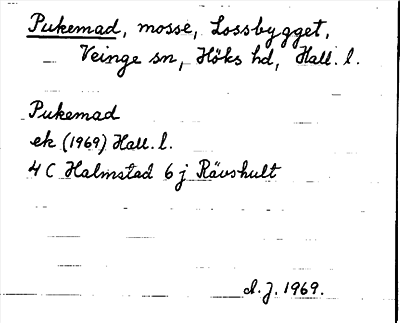 Pukemad, mosse, Lossbygget,
Veinge sn, Höks hd, Hall. l.
Pukemad
ek (1969) Hall. l.
4 C Halmstad 6 j Rävshult
A. J. 1969.